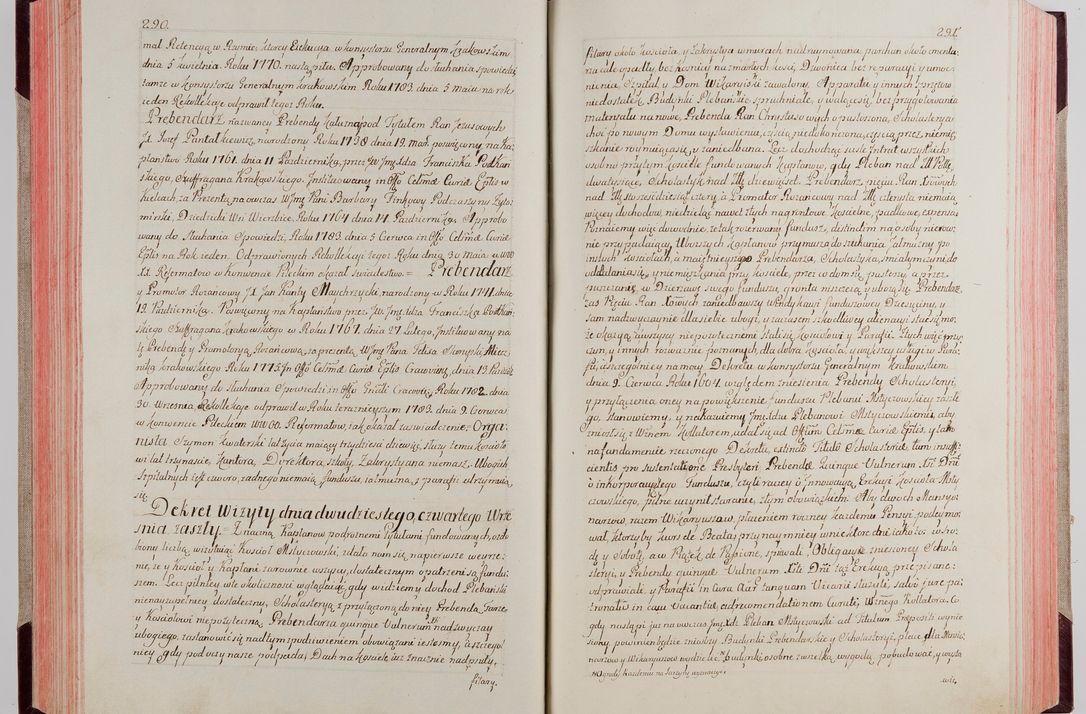 290.
mal Retencyą w Rzymie, ktorey Exekucya w konsystorzu Generalnym Krakowskim
dnia 5 kwietnia Roku 1770. nastąpiła. Approbowany do słuchania spowiedzi
tamże w konsystorzu Generalnym krakowskim Roku 1783. dnia 5 maia na rok
ieden Rekollekcye odprawił tegoż Roku.
Prebendarz nazwaney Prebendy pod Tytułem Ran Jezusowych
JX. Jozef Pantalkiewicz, narodzony Roku 1738 dnia 19. mar. poswięcony na ka-
płanstwo Roku 1761. dnia 11 Pazdziernika, przez JW. JmęXdza Franciszka Podkan-
skiego, Suffragana Krakowskiego. Instituowany in Offo Celsmæ Curiæ Eplis w
Kielcach, za Prezentą na owczas WJmę Pani Barbary Podczaszyny Żyto-
mirski, Dziedzicki Wsi Wierzbice, Roku 1764 dnia 14. Pazdziernika. Approbo-
wany do słuchania Spowiedzi, Roku 1783. dnia 5 Czerwca in Offo Celsmæ Curiæ
Eplis na Rok ieden. Odprawionych Rekollekcyi tegoż Roku dnia 30 maia u WW
XX. Reformatow w Konwencie Pileckim okazał swiadectwo. = Prebendarz
y Promotor Rożancowy JX. Jan Kanty Maychrzycki, narodzony w Roku 1741. dnia
19. Pazdziernika. Poswięcony na Kapłanstwo przez JW. JmęXdza Franciszka Podkan-
skiego Suffragana krakowskiego w Roku 1767. dnia 27 Lutego, Instituowany na
tę Prebendę y Promotoryą Rożancową, za prezentą WJmę Pana Felixa Skorupki, Miecz-
nika krakowskiego Roku 1775. In Offo Celsmæ Curiæ Eplis Cracovien. dnia 13. Pazdzier
Approbowany do słuchania Spowiedzi in Offo Grāli Cracov: Roku 1782. dnia
30. Wrzesnia, Rekollekcye odprawił w Roku teraznieyszym 1783. dnia 9. Czerwca
w konwencie Pileckim WWOO. Reformatow, iak okazał zaswiadczenie. = Orga-
nista Szymon Kwaterski lat życia maiący trzydziesci dziewięć, służy temu kosciolo-
wi lat trzynascie, Kantora, Dyrektora szkoły, Zakrystyana niemasz. Ubogich
szpitalnych iest czworo, żadnego niemaią funduszu, iałmużną, z parafii utrzymuią
się.
Dekret Wizyty dnia dwudziestego, czwartego Wrze-
snia zaszły. = Znaczną Kapłanow pod roznemi Tytułami fundowanych, ozdo-
biony liczbą, wizytuiąc Kosciół Mstyczowski, zdało nam się na pierwsze weyrze-
nie, że y kosciół y Kapłani zarowno wszyscy, dostatecznym opatrzeni są fundu-
szem. Lecz pilniey w te okolicznosci wglądaiąc, gdy widziemy dochod Plebanski
nienayzupełniey dostateczny, Scholasteryą z przyłączoną do niey Prebendą,
y Kosciołowi niepożyteczną, Prebendarza quinque Vulnerum nadzwyczay
ubogiego, zastanowić się nad tym z podziwieniem obowiązani iestesmy, a szczegol-
niey, gdy pod oczy nasze podpada, Dach na Kosciele iuż znacznie nadpsuty,
filary.
291.
filary około kościoła, y zakrystya w murach nadruynowana, parchan około cmenta-
rza cale opadły, bez kosnicy na zmarłych kosci, Dzwonica bez reparacyi y umoc-
nienia, Szpital y Dom Wikaryiski zawalony, Apparatu y innych sprzętow
niedostatek, Budynki Plebanskie spruchniałe, y walące się, bez przygotowania
materyału na nowe, Prebenda Ran Chrystusowych opustoszona, Scholasterya
choć po nowym Domu wystawieniu, częscią niedokonczona, częscią przez niemie-
szkanie ruynuiąca się, y zaniedbana. Lecz dochodząc suże Intrat wszystkich
osobno przy tym kosciele fundowanych kapłonow, gdy Pleban nad
dwa tysiące, Scholastyk nad dziewięćset, Prebendarz pięciu Ran Xstowych
nad sto szescdziesiąt cztery, a Promotor Rożancowy nad czterysta niemaią
więcey dochodow, niedzieląc nawet z tych na gruntowe, koscielne, padliowe, expensa.
Poznaiemy więc dowodnie, że tak rozerwany fundusz, distinctim na osoby nierow-
nie przypadaiący, Uboższych kapłanow przymusza do szukania Jałmużny po
inszych kosciołach, a maiętnieyszego Prebendarza, Scholastyka, smiałym czyni do
oddalania się, y niemieszkania przy kosciele, przez co dom się pustoszy, a przez
puszczenie w Dzierżawę swego funduszu, grunta niszczeią y ubożą się. Prebendarz
zas Pięciu Ran Xstowych zaniedbawszy windykacyi funduszowey Dziesięciny, y
sam nadzwyczaynie dla siebie ubogi, y zarazem szkodliwey alienacyi stał się mo-
że okazyą, aniszey niepożytecznemi stali się kosciołowi y Parafii. Z tych więc przy-
czyn, y innych rozważnie poznanych, dla dobra kosciola, y większey usługi w Para-
fii, a szczegolniey na mocy Dekretu w konsystorzu Generalnym Krakowskim
dnia 9. Czerwca Roku 1604. względem zniesienia Prebendy Scholasteryi,
y przyłączenia oney na powiększenie funduszu Plebanii Mstyczowskiey zaszłe-
go, stanowiemy, y nakazuiemy JmęXdzu Plebanowi Mstyczowskiemu, aby
zniosłszy z Wżnem Kollatorem, udał się ad Offium Celsmæ Curiæ Eplis, y tam
na fundamencie rzeczonego Dekretu, extincto Titulo Scholasteriæ, tum insuffi-
cientis pro sustentatione Presbyteri Prebendæ Quinque Vulnerum Xti Dni
o inkorporacyą tego Funduszu, czyli raczey o Jnnowacyą Erekcyi kosciola Msty-
czowskiego, pilne uczynił staranie, z tym obowiązkiem. Aby dwoch Mansyo-
narzow, razem Wikaryuszow, płaceniem roczney każdemu Pensyi podeymo-
wał, ktorzyby kurs de Beata przynaymniey w niektore dni iako to: w sro-
dę y Sobotę, a w Piątek de Passione, spiewali, Obligacye zniesioney Schola-
steryi, y Prebendy quinque Vulnerum Xti Dni tąż Erekcyą przepisane
odprawiali, y Parafii in Cura Aār tanquam Vicarii służyli, salvo jure pa-
tronatus in casu Vacantiæ, ad recomendationem Curati, Wżnego Kollatora. Co
gdy nastąpi, iuż na owczas JmęXdz Pleban Mstyczowski ad Titulum Præpositi wynie-
siony powinien będzie między Budynki Prebendarskie y Scholasteryi, place dla Mansio-
narzow y Wikaryuszow wydzielić N Budynki osobne z wszelką wygodą, pobudować, y wysta
N Ogrody każdemu na Jarzyny wyznaczyć.
wić.